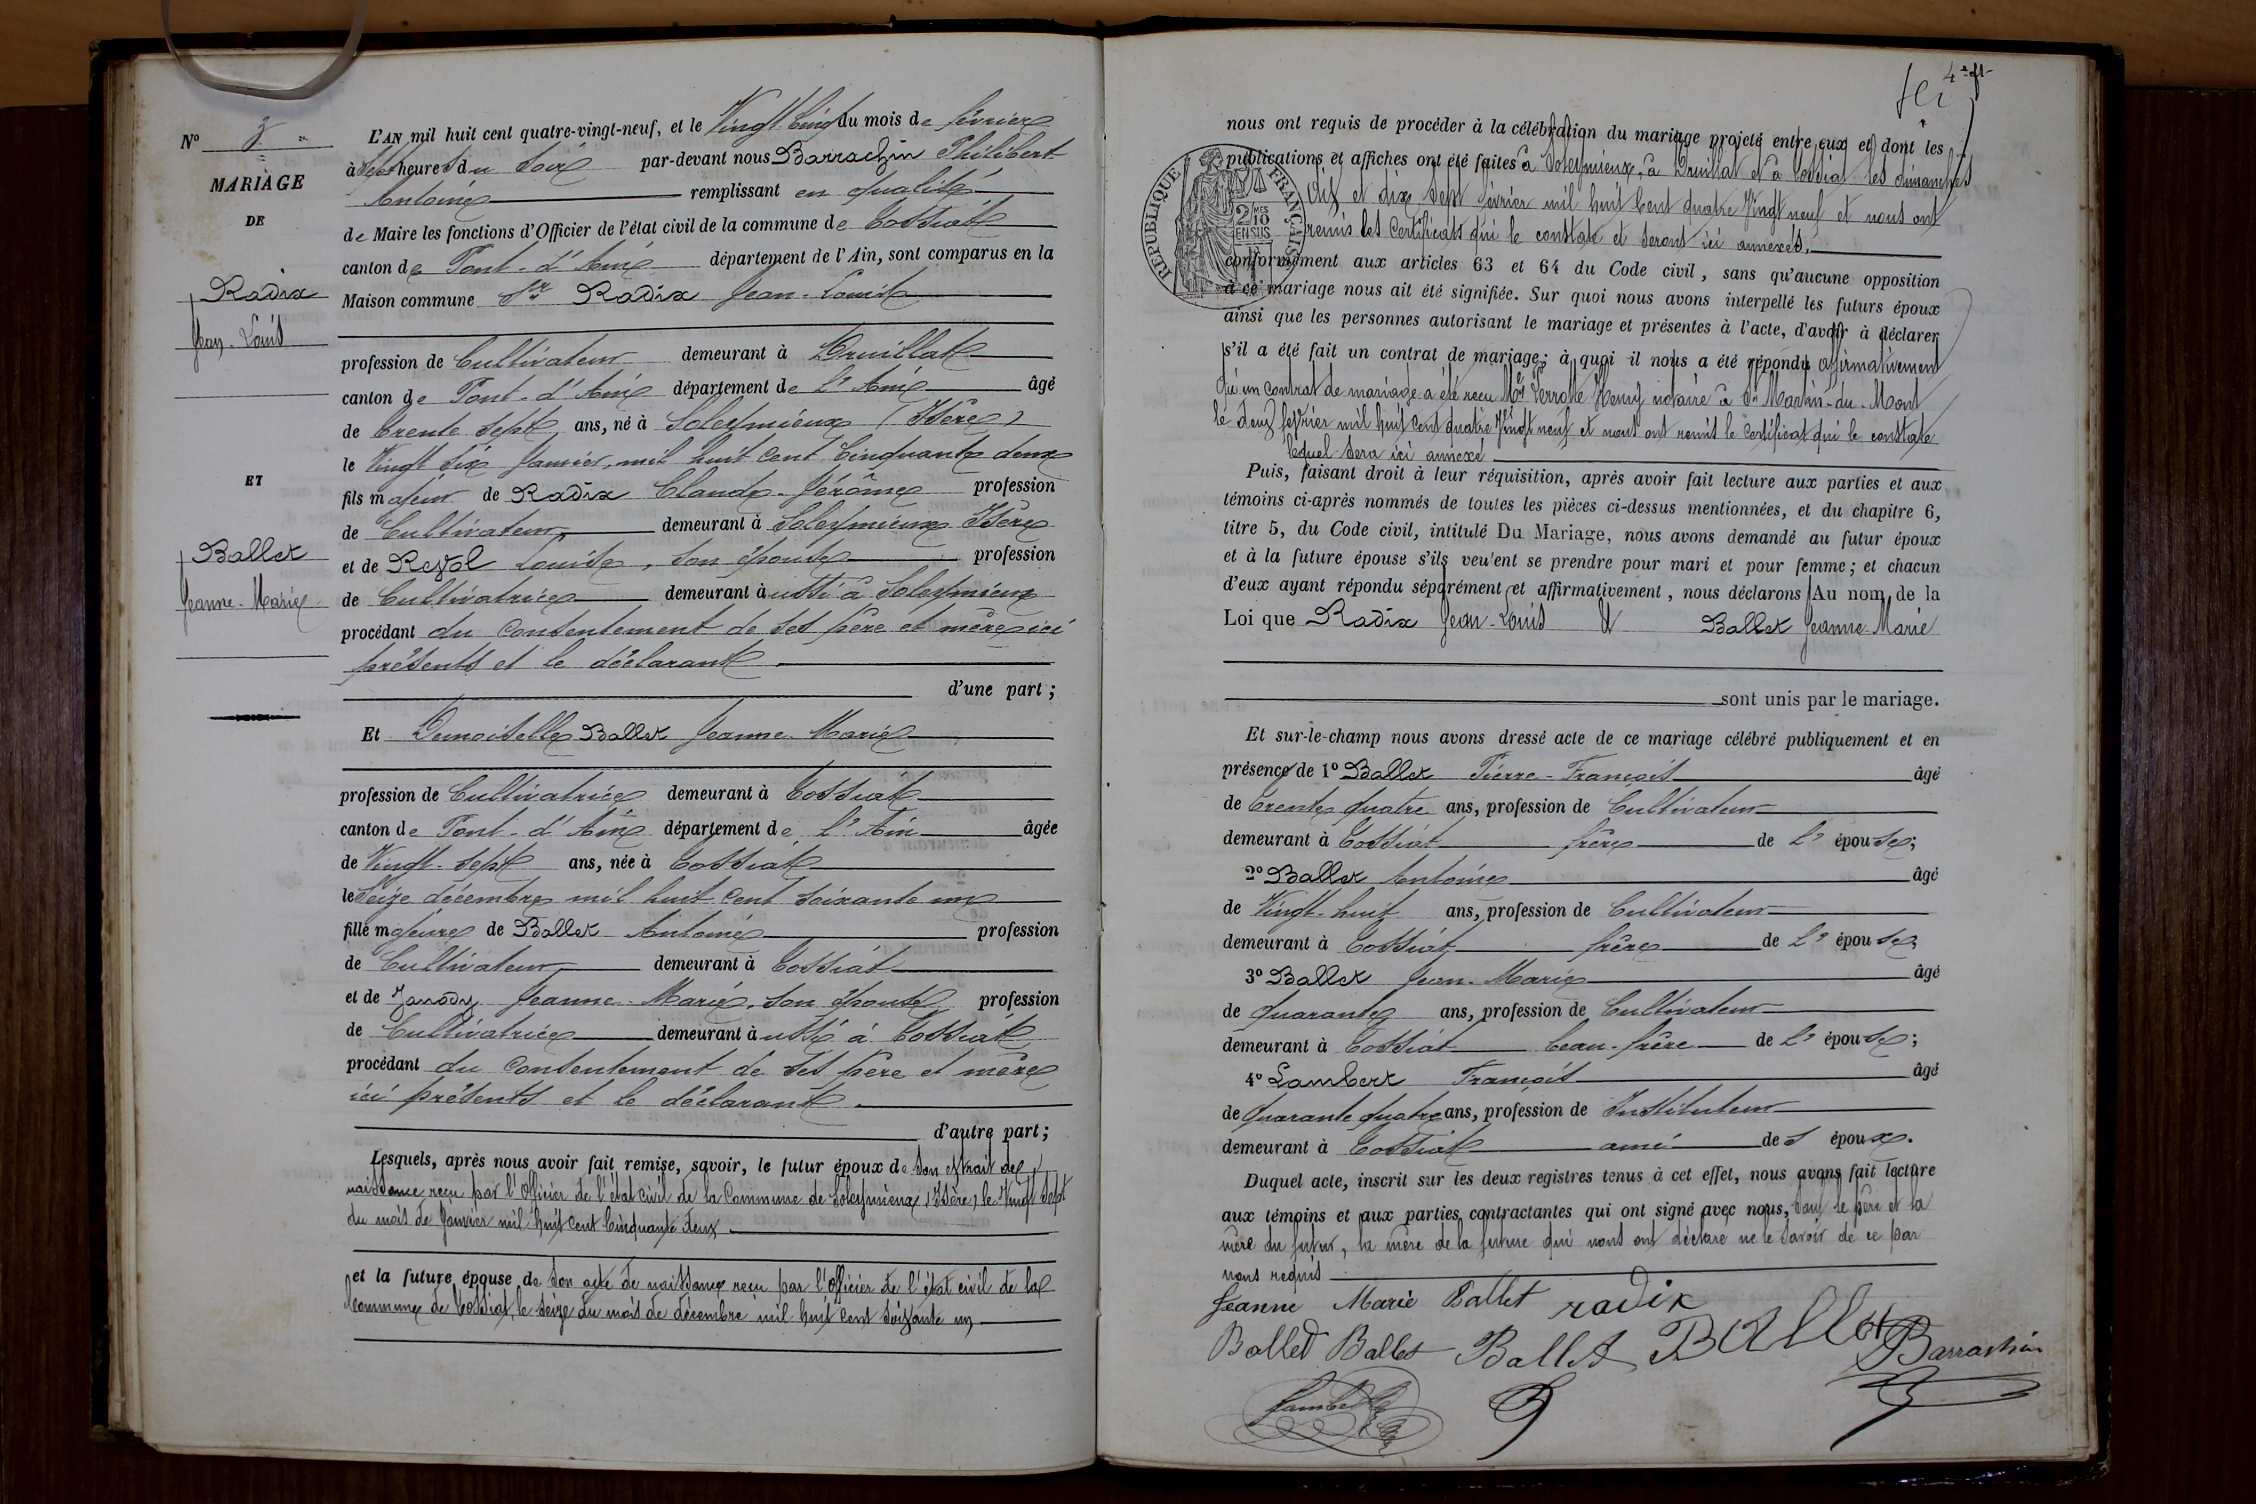 N° 3
MARIAGE
DE
Radix
Jean-Louis
ET
Ballet
Jeanne-Marie
L'AN mil huit cent quatre-vingt-neuf, et le Vingt Cinq du mois de février
à Sept heures du Soir par-devant nous Barrachin Philibert
Antoine remplissant en qualité
de Maire les fonctions d'Officier de l'état civil de la commune de Tossiat
canton de Pont-d'Ain département de l'Ain, sont comparus en la
Maison commune Sr Radix Jean-Louis
profession de Cultivateur demeurant à Druillat
canton de Pont-d'Ain département de l'Ain âgé
de trente sept ans, né à Soleymieux (Isère)
le Vingt six Janvier, mil huit cent Cinquante deux
fils majeur de Radix Claude-Jérôme profession
de Cultivateur demeurant à Soleymieux Isère
et de Revol Louise, son épouse profession
de Cultivatrice demeurant aussi à Soleymieux
procédant du Consentement de ses père et mère ici
présents et le déclarant
d'une part ;
Et Demoiselle Ballet Jeanne-Marie
profession de Cultivatrice demeurant à Tossiat
canton de Pont-d'Ain département de l'Ain âgée
de Vingt-sept ans, née à Tossiat
le Seize décembre mil huit cent soixante un
fille majeure de Ballet Antoine profession
de Cultivateur demeurant à Tossiat
et de Janody Jeanne-Marie, son épouse profession
de Cultivatrice demeurant aussi à Tossiat
procédant du Consentement de ses père et mère
ici présents et le déclarant.
d'autre part ;
Lesquels, après nous avoir fait remise, savoir, le futur époux de son extrait de
naissance reçu par l'Officier de l'état civil de la Commune de Soleymieux (Isère) le Vingt Sept
du mois de Janvier mil huit cent Cinquante deux
et la future épouse de son acte de naissance reçu par l'Officier de l'état civil de la
Commune de Tossiat, le seize du mois de décembre mil huit cent soixante un
nous ont requis de procéder à la célébration du mariage projeté entre eux et dont les
publications et affiches ont été faites à Soleymieux, à Druillat et à Tossiat les dimanches
dix et dix sept février mil huit Cent quatre Vingt neuf et nous ont
remis les Certificats qui le constate et seront ici annexés.
RÉPUBLIQUE FRANÇAISE
2 MES 10 EN SUS
conformément aux articles 63 et 64 du Code civil, sans qu'aucune opposition
à ce mariage nous ait été signifiée. Sur quoi nous avons interpellé les futurs époux
ainsi que les personnes autorisant le mariage et présentes à l'acte, d'avoir à déclarer
s'il a été fait un contrat de mariage; à quoi il nous a été répondu affirmativement
qu'un contrat de mariage a été reçu Me Perrotte Henry notaire à St Martin-du-Mont
le deux février mil huit cent quatre Vingt neuf et nous ont remis le certificat qui le constate
lequel sera ici annexé
Puis, faisant droit à leur réquisition, après avoir fait lecture aux parties et aux
témoins ci-après nommés de toutes les pièces ci-dessus mentionnées, et du chapitre 6,
titre 5, du Code civil, intitulé Du Mariage, nous avons demandé au futur époux
et à la future épouse s'ils veulent se prendre pour mari et pour femme ; et chacun
d'eux ayant répondu séparément et affirmativement, nous déclarons Au nom de la
Loi que Radix Jean-Louis & Ballet Jeanne-Marie
sont unis par le mariage.
Et sur-le-champ nous avons dressé acte de ce mariage célébré publiquement et en
présence de 1° Ballet Pierre-François âgé
de trente quatre ans, profession de Cultivateur
demeurant à Tossiat frère de l'épouse;
2° Ballet Antoine âgé
de Vingt-huit ans, profession de Cultivateur
demeurant à Tossiat frère de l'épouse,
3° Ballet Jean-Marie âgé
de quarante ans, profession de Cultivateur
demeurant à Tossiat beau-frère de l'épouse;
4° Lambert François âgé
de quarante quatre ans, profession de Instituteur
demeurant à Tossiat ami des époux.
Duquel acte, inscrit sur les deux registres tenus à cet effet, nous avons fait lecture
aux témoins et aux parties contractantes qui ont signé avec nous, sauf le père et la
mère du futur, la mère de la future qui nous ont déclaré ne le savoir de ce par
nous requis
Jeanne Marie Ballet radix
Ballet Ballet Ballet Ballet Barrachin
Lambert